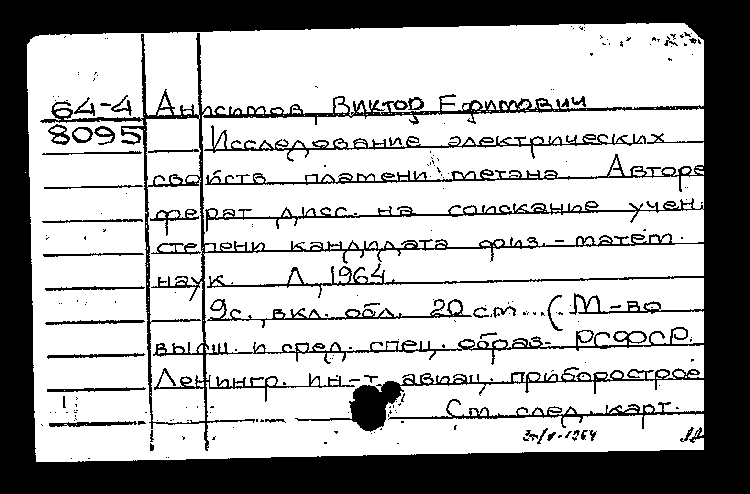 64-4 Анисимов, Виктор Ефимович
8095 Исследование электрических
свойств пламени метана. Авторе
ферат дисс. на соискание учен.
степени кандидата физ.-матем.
наук. Л., 1964.
9с., вкл. обл. 20 см. (М-во
высш. и сред. спец. образ. РСФСР.
Ленингр. ин-т авиац. приборострое
См. след. карт.